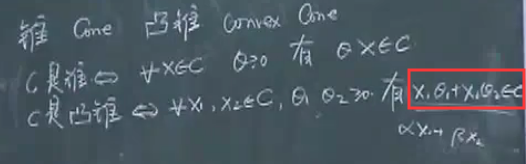 锥 Cone 凸锥 Convex Cone
C是锥 ⇔ ∀x∈C θ≥0 有 θx∈C
C是凸锥 ⇔ ∀x₁, x₂∈C, θ₁ θ₂≥0 有 x₁θ₁+x₂θ₂∈C
αx₁+βx₂